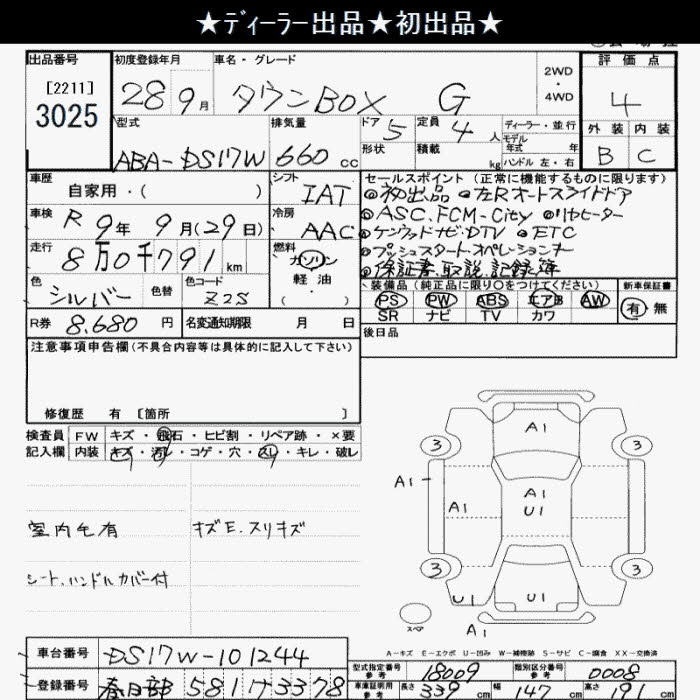 ★ディーラー出品★初出品★
出品番号 初度登録年月 車名・グレード 2WD・4WD 評価点
[2211]
3025
28 9月 タウンBOX G 4
型式 排気量 ドア 5 定員 4人 ディーラー・並行 外装 内装
モデル年式 年
形状 積載 kg ハンドル 左・右
ABA-DS17W 660cc B C
車歴 シフト セールスポイント (正常に機能するものに限ります)
自家用・( ) IAT
◎初出品 ◎左Rオートスライドドア
車検 R9年 9月(29日) 冷房 AAC
◎ASC.FCM-City ◎リヤヒーター
◎ケンウッドナビ・DTV ◎ETC
走行 8万0千791km 燃料 ガソリン
軽油
( )
◎プッシュスタート・オペレーションキー
◎保証書、取説、記録簿
色 シルバー 色替 色コード Z2S
装備品 (純正品に限り○をつけてください) 新車保証書
PS PW ABS エアB AW 有 無
SR ナビ TV カワ
R券 8.680円 名変通知期限 月 日
後日品
注意事項申告欄 (不具合内容等は具体的に記入して下さい)
修復歴 有 [箇所 ]
検査員 FW キズ・飛石・ヒビ割・リペア跡・×要
記入欄 内装 キズ・汚レ・コゲ・穴・スレ・キレ・破レ
室内毛有 キズE.スリキズ
シート、ハンドルカバー付
A1
3 3
A1
A1
A1
U1
3 3
U1 U1
スペア
A1
A-キズ E-エクボ U-凹み W-補修跡 S-サビ C-腐食 XX-交換済
車台番号 DS17W-101244
型式指定番号 参考 18009 類別区分番号 参考 0008
登録番号 春日部 581 ワ 3378
車車証明用 参考 長さ 339cm 幅 147cm 高さ 91cm